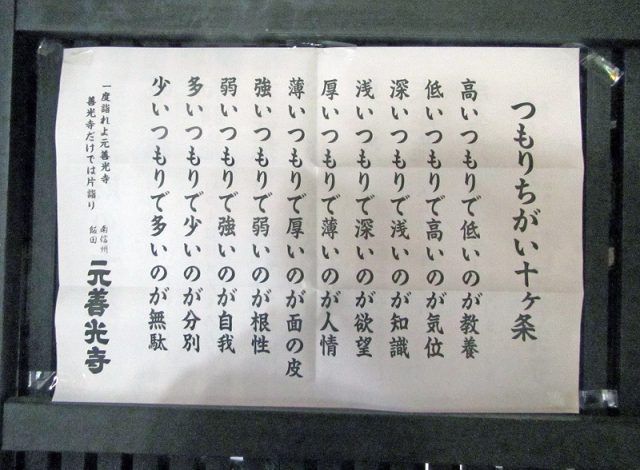 つもりちがい十ヶ条
高いつもりで低いのが教養
低いつもりで高いのが気位
深いつもりで浅いのが知識
浅いつもりで深いのが欲望
厚いつもりで薄いのが人情
薄いつもりで厚いのが面の皮
強いつもりで弱いのが根性
弱いつもりで強いのが自我
多いつもりで少いのが分別
少いつもりで多いのが無駄
一度詣れよ元善光寺
善光寺だけでは片詣り
南信州
飯田
元善光寺